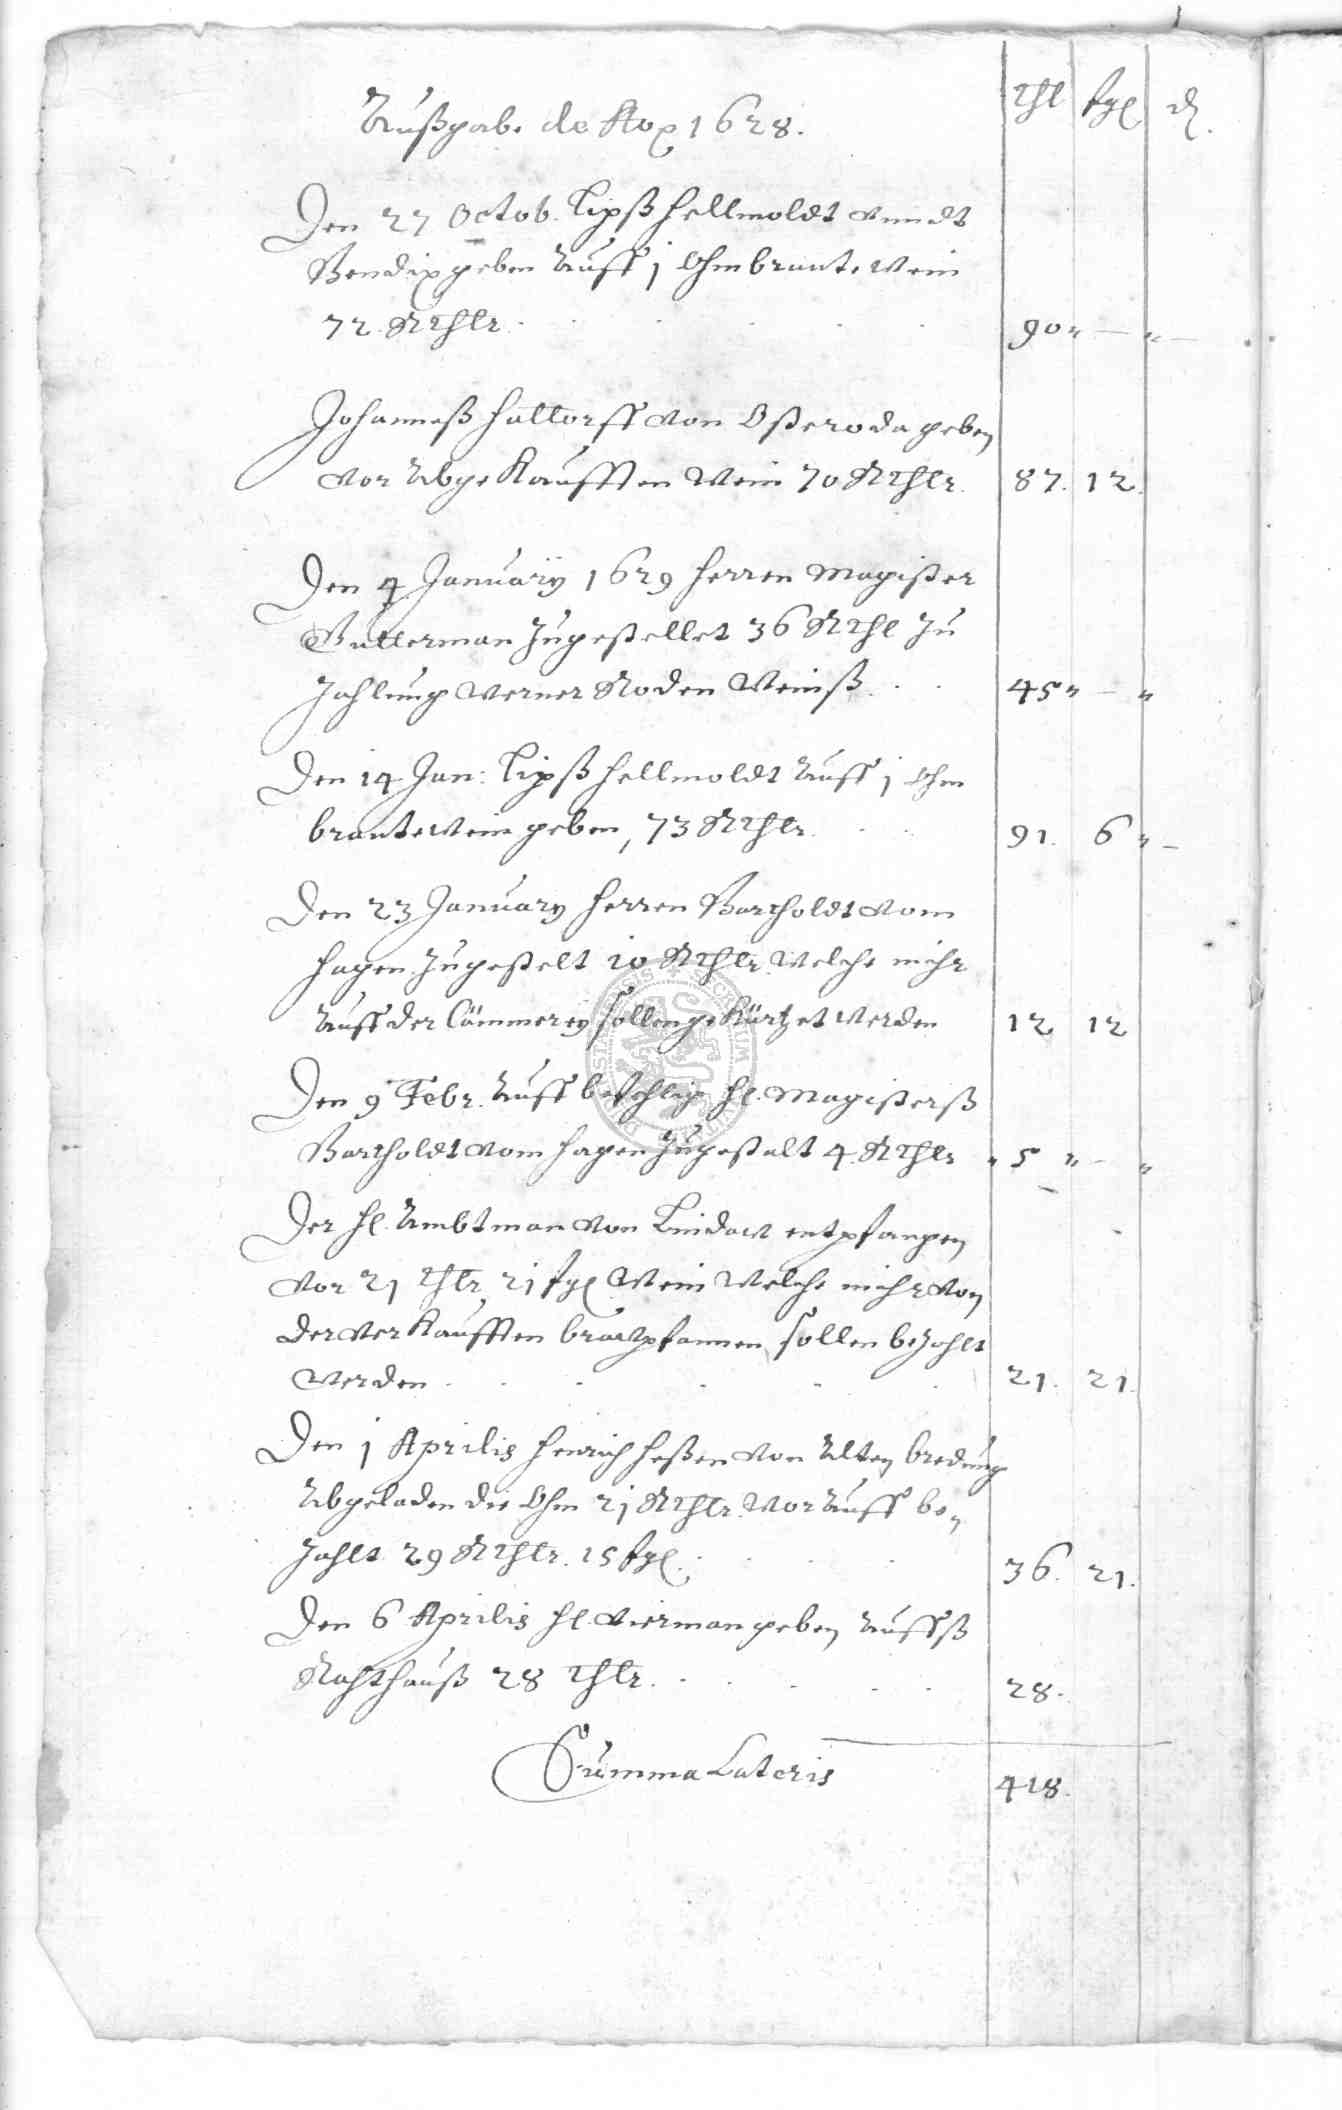 Außgabe de Ao 1628. Thl fgl d.
Den 27 Octob. Lipß Hellmoldt vnndt
Bendix geben Auff j Ohm brantewein
72 RThlr. 90 " — " —
Johanneß Hattorff von Osteroda geben
vor Abgekaufften Wein 70 RThlr. 87. 12.
Den 4 January 1629 Herren Magister
Butterman Zugestellet 36 RThl Zu
Zahlung Werner Roden Weinß. 45 " — "
Den 14 Jan: Lipß Hellmoldt Auff j Ohm
brantewein geben, 73 RThlr. 91. 6 " —
Den 23 January Herren Bartholdt vom
Hagen Zugestelt 10 RThlr. Welche mihr
Auff der Cämmerey sollen gekürtzet werden 12 12
Den 9 Febr. Auff bevehlig Hl. Magisterß
Bartholdt vom Hagen Zugestalt 4 RThlr " 5 " — "
Der Hl. Ambtman von Lindaw entpfangen
vor 21 Thlr, 21 fgl Wein Welche mihr von
der verkaufften brawpfannen sollen bezahlt
werden 21. 21.
Den j Aprilis Heinrich Heßen von Alten
Abgeladen die Ohm 21 RThlr. Vor Auff be-
Zahlt 29 RThlr. 15 fgl. 36. 21.
Den 6 Aprilis Hl. Vierman geben Auffß
Rahthauß 28 Thlr. 28.
Summa Lateris 418.